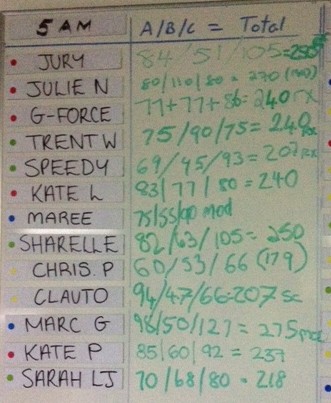 5 AM A/B/C = Total
JURY 84/51/105=250
JULIE N 80/110/80 = 270 (mod)
G-FORCE 77+77+86=240 rx
TRENT W 75/90/75=240 Rx
SPEEDY 69/45/93=207 Rx
KATE L 83/77/80=240
MAREE 75/55/90 mod
SHARELLE 82/63/105=250
CHRIS. P 60/53/66 (179)
CLAUTO 94/47/66=207 sc
MARC G 98/50/127=275 mod
KATE P 85/60/92=237
SARAH LJ 70/68/80=218